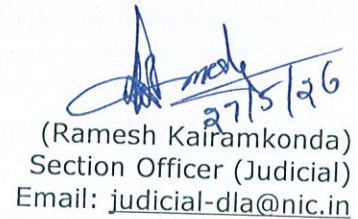 27/5/26
(Ramesh Kairamkonda)
Section Officer (Judicial)
Email: judicial-dla@nic.in